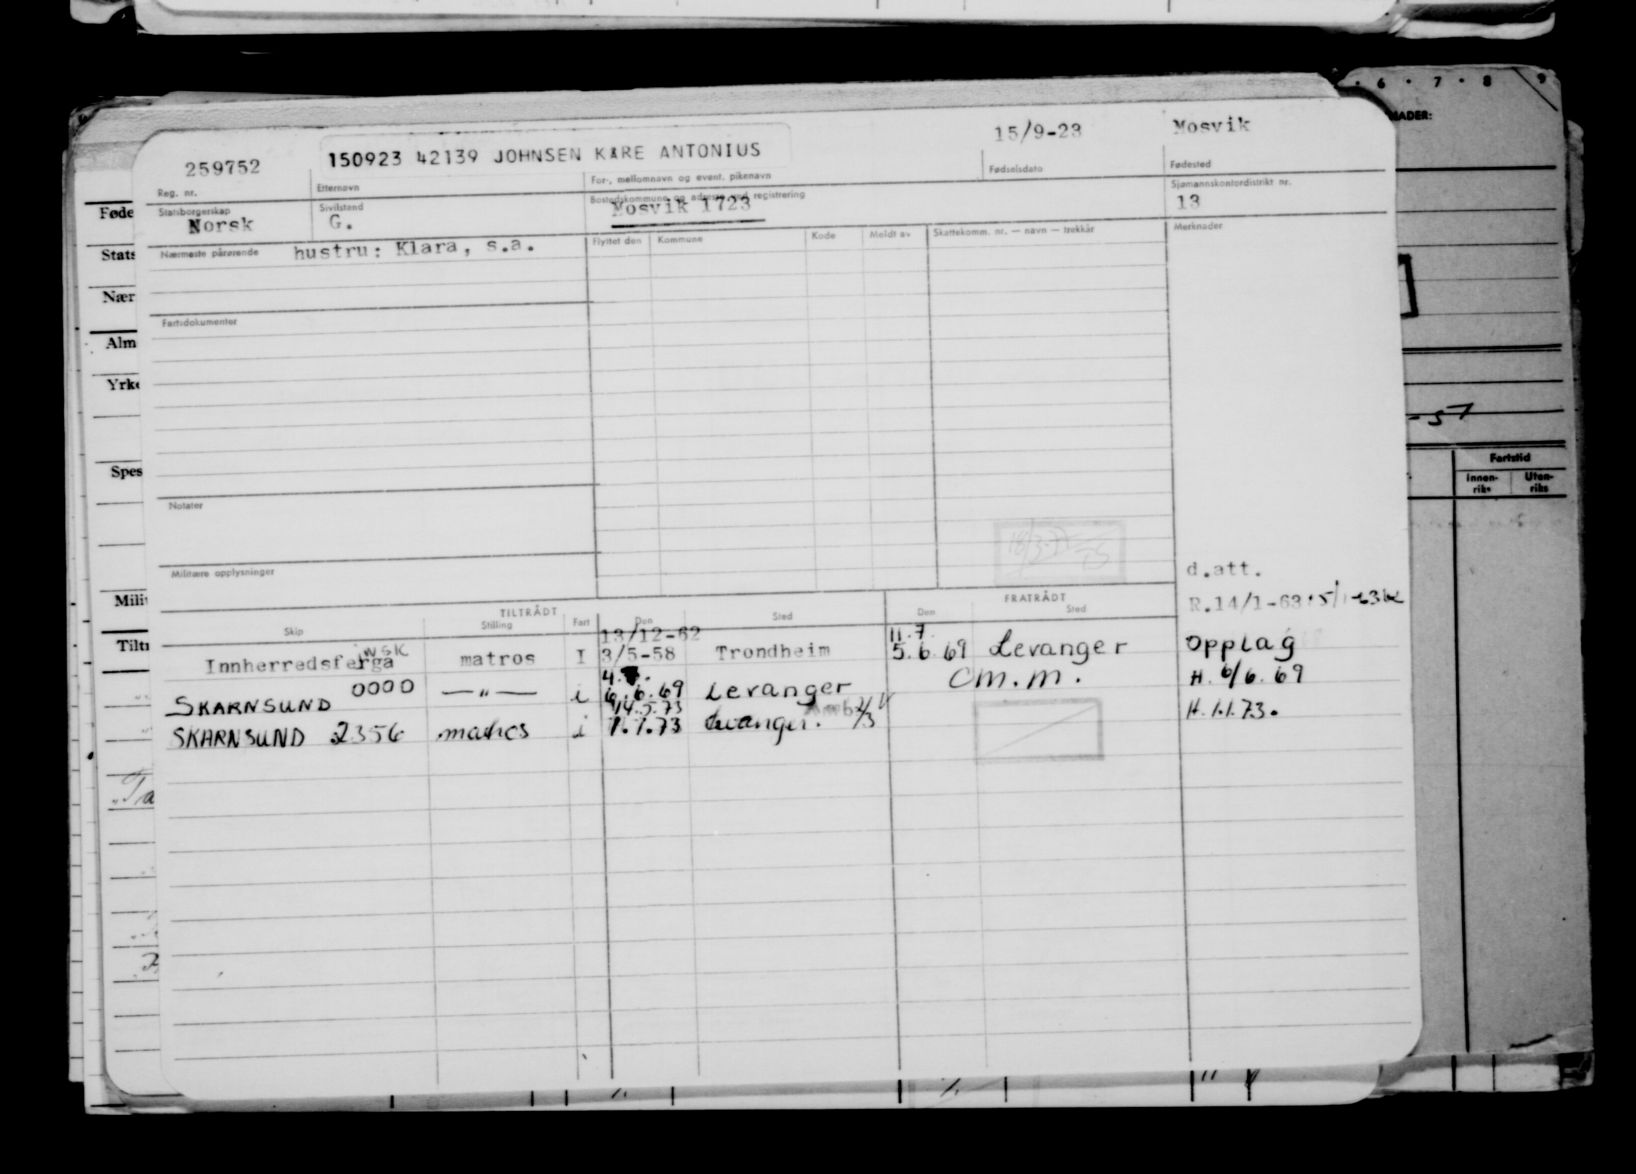 6 · 7 · 8 9
259752
150923 42139 JOHNSEN KARE ANTONIUS
15/9-23
Mosvik
Reg. nr.
Etternavn
For-, mellomnavn og event. pikenavn
Fødselsdato
Fødested
Statsborgerskap
Norsk
Sivilstand
G.
Bostedskommune og adresse ved registrering
Mosvik 1723
Sjømannskontordistrikt nr.
13
Nærmeste pårørende
hustru: Klara, s.a.
Flyttet den
Kommune
Kode
Meldt av
Skattekomm. nr. — navn — trekkår
Merknader
Fartsdokumenter
Notater
Militære opplysninger
d.att.
R.14/1-63
TILTRÅDT
FRATRÅDT
Skip
Stilling
Fart
Den
Sted
Den
Sted
13/12-62
11.7.
WSK
Innherredsferga
matros
I
3/5-58
Trondheim
5.6.69
Levanger
Opplag
SKARNSUND 0000
—"—
i
6.6.69
Levanger
Cm.m.
H. 6/6.69
14.5.73
SKARNSUND 2356
matros
i
1.1.73
Levanger.
2/3
H.1.1.73.
Føde
Stats
Nær
Alm
Yrke
Spes
Mili
Tilt
-57
Fartstid
Innen-
riks
Uten-
riks